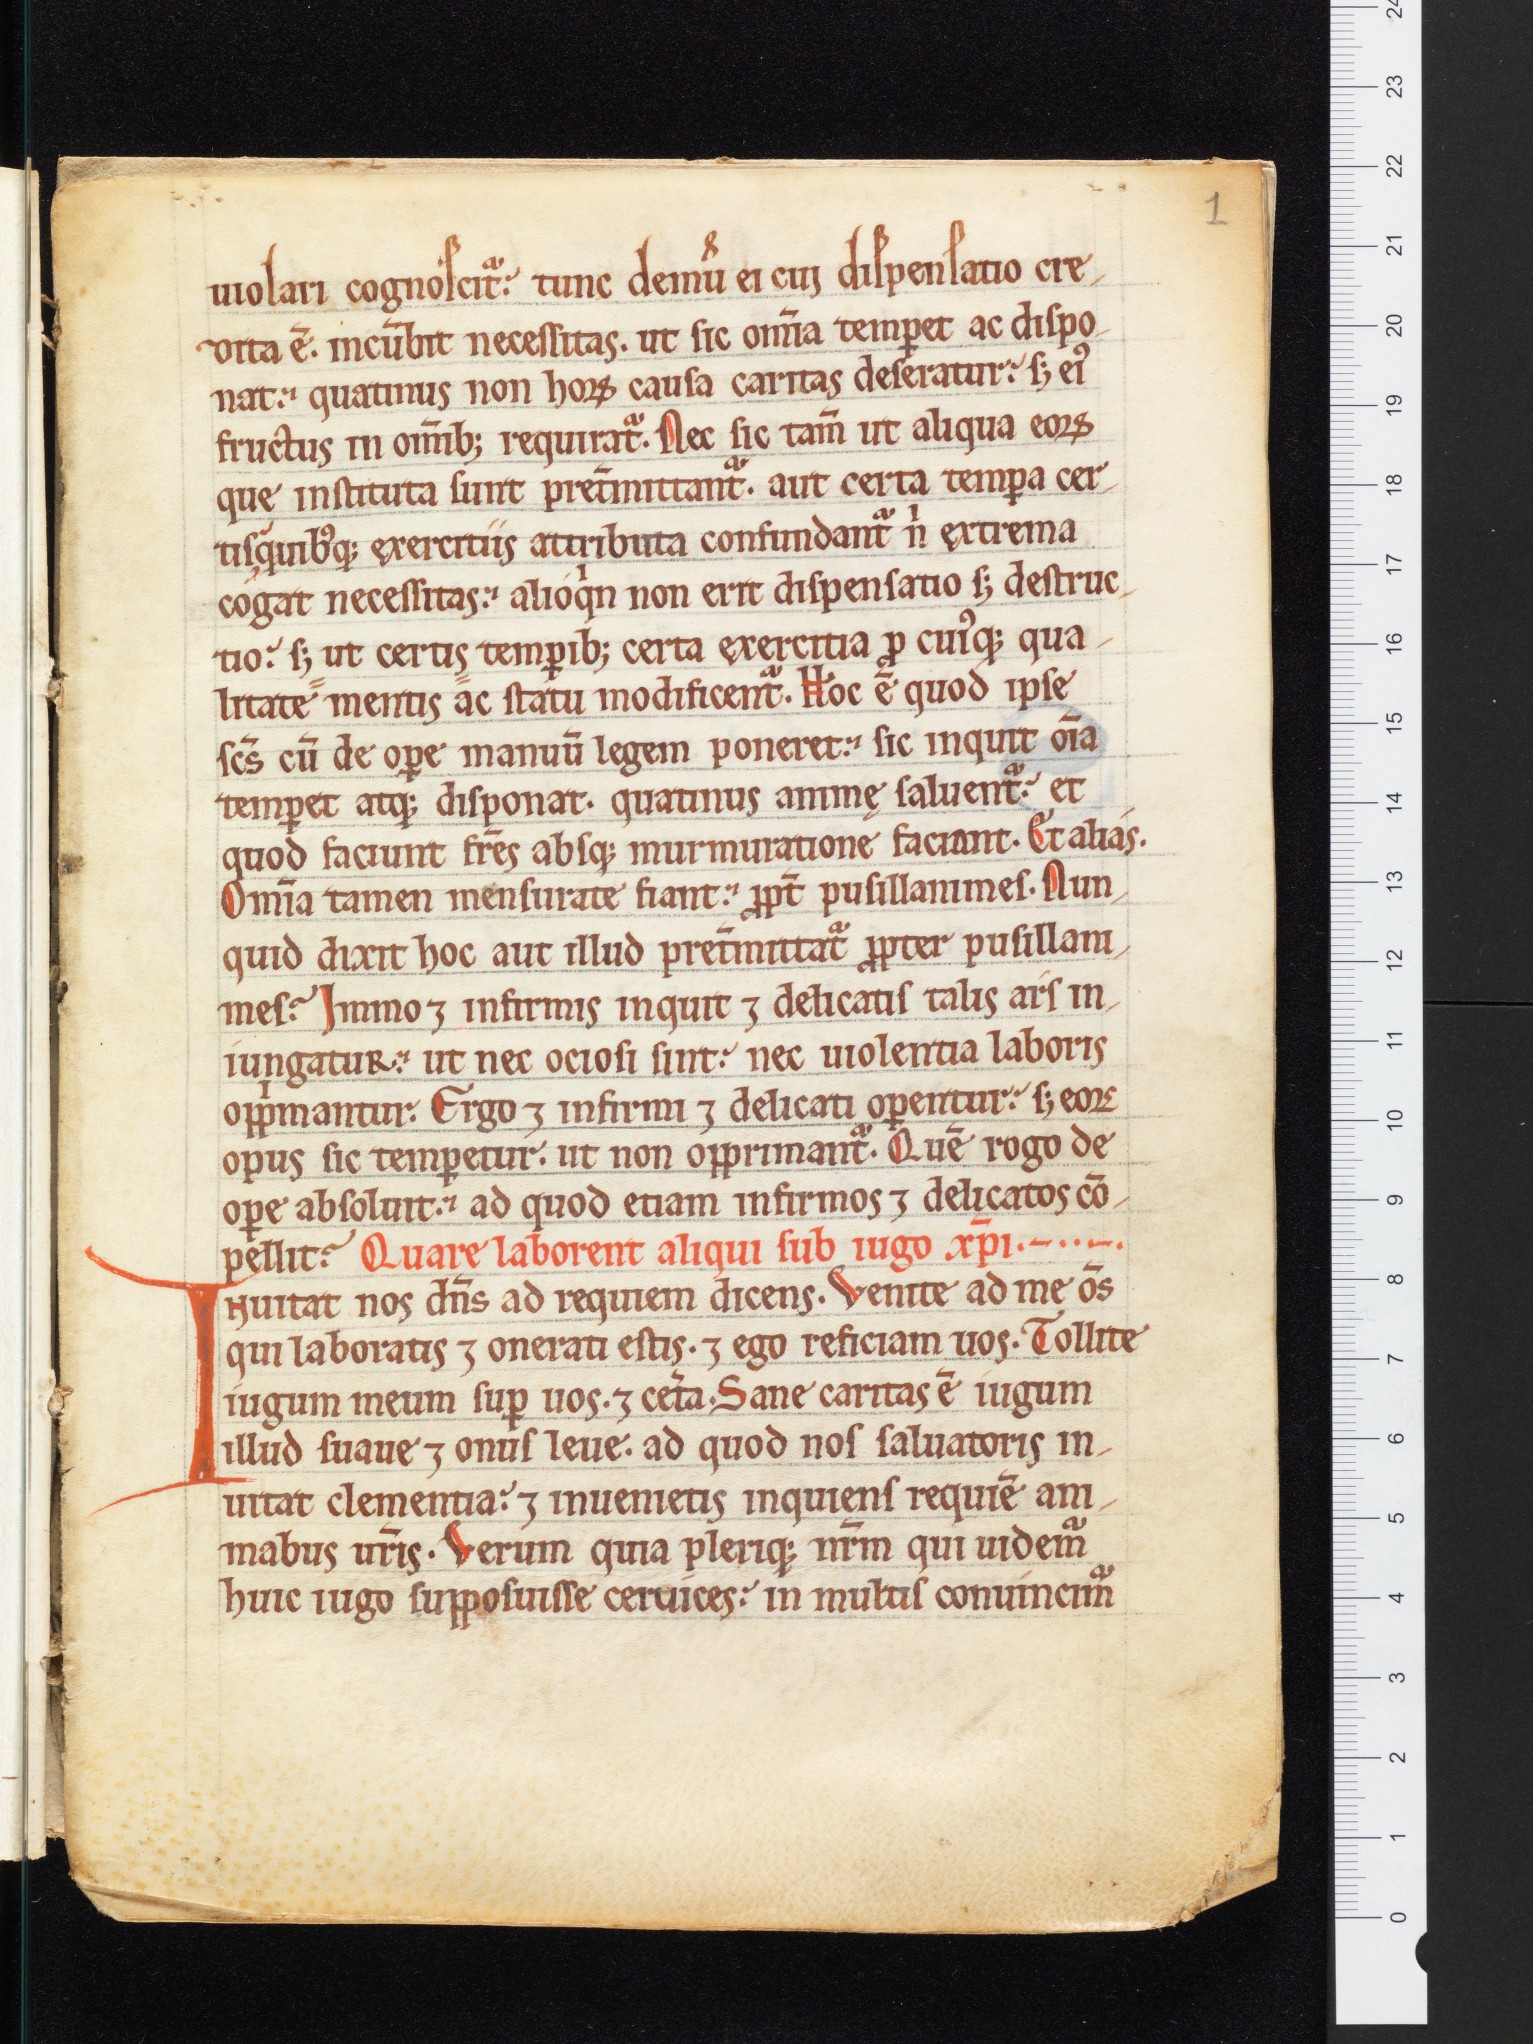 1
uiolari cognoscit᷑. tunc demū ei cui dispensatio cre-
dita ē. incūbit necessitas. ut sic om̄ia temꝑet ac dispo-
nat. quatinus non hoꝝ causa caritas deseratur. s; ei᷒
fructus in om̄ib; requirat᷑. Nec sic tam̄ ut aliqua eoꝝ
que instituta sunt pret̄mittant᷑. aut certa temꝑa cer-
tisq; quib᷒q; exercitiis attributa confundant᷑ ń extrema
cogat necessitas. alioqin non erit dispensatio s; destruc-
tio. s; ut certis temꝑib; certa exercitia ꝑ cui᷒q; qua-
litate mentis ac statu modificent᷑. Hoc ē quod ipse
sc̄s cū de oꝑe manuū legem poneret. sic inquit oīa
temꝑet atq; disponat. quatinus animę saluent᷑. et
quod faciunt fr̄es absq; murmuratione faciant. Et alias.
Om̄ia tamen mensurate fiant. ꝓpt̄ pusillanimes. Nun-
quid dixit hoc aut illud pret̄mittat᷑ ꝓpter pusillani-
mes. Immo ⁊ infirmis inquit ⁊ delicatis talis ars in-
iungatur. ut nec ociosi sint. nec uiolentia laboris
oppͥmantur. Ergo ⁊ infirmi ⁊ delicati oꝑentur. s; eoꝝ
opus sic temꝑetur. ut non opprimant᷑. Quē rogo de
oꝑe absoluit. ad quod etiam infirmos ⁊ delicatos cō-
pellit. Quare laborent aliqui sub iugo xp̄i.
Inuitat nos dn̄s ad requiem dicens. Venite ad me ōs
qui laboratis ⁊ onerati estis. ⁊ ego reficiam uos. Tollite
iugum meum suꝑ uos. ⁊ cet̄a. Sane caritas ē iugum
illud suaue ⁊ onus leue. ad quod nos saluatoris in-
uitat clementia. ⁊ inuenietis inquiens requiē ani-
mabus ur̄is. Verum quia pleriq; nr̄m qui uidem᷑
huic iugo supposuisse ceruices. in multis conuincim᷑
0
1
2
3
4
5
6
7
8
9
10
11
12
13
14
15
16
17
18
19
20
21
22
23
24